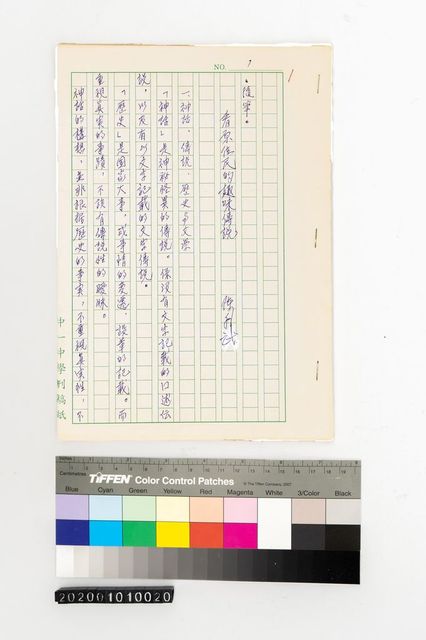 NO. 1
•隨筆•
看原住民的趣味傳說
一、神話、傳說、歷史與文學
「神話」是神秘怪異的傳說。係沒有文字記載的口述傳
說，以及有以文字記載的文學傳說。
「歷史」是國家大事，或事情的變遷、沿革的記載。而
重視真實的事蹟，不該有傳說性的曖昧。
神話的構想，並非根據歷史的事實，不重視真實性，不
中一中學刊稿紙
inches
Centimetres
TIFFEN Color Control Patches
© The Tiffen Company, 2007
Blue Cyan Green Yellow Red Magenta White 3/Color Black
202001010020